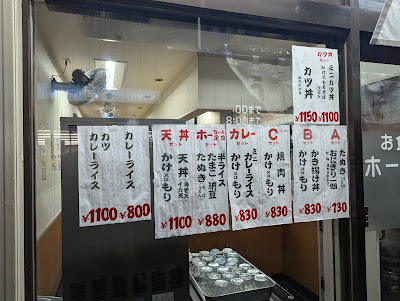 カツ丼
セット
ミニカツ丼
¥1100
カツ丼
¥1150
A
セット
たぬき
おにぎり二個
¥730
B
セット
かき揚げ丼
かけ又はもり
¥780
C
セット
焼肉丼
かけ又はもり
¥830
カレー
セット
ミニ
カレーライス
かけ又はもり
¥830
ホー
セット
半ライス
たまご 納豆
たぬき
¥880
天丼
セット
天丼
海老天
イカ天
かけ又はもり
¥1100
カレーライス
¥800
カツ
カレーライス
¥1100
:00まで
8:00まで
お食
ホー